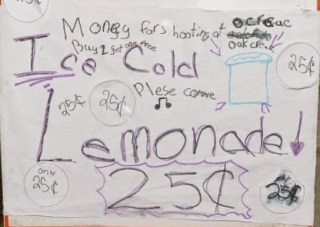 Money for shooting at ocreac
oak creek
Buy 1 get one free
Ice Cold
25¢
25¢
25¢
Plese comme
Lemonade!
only
25¢
25¢
25¢